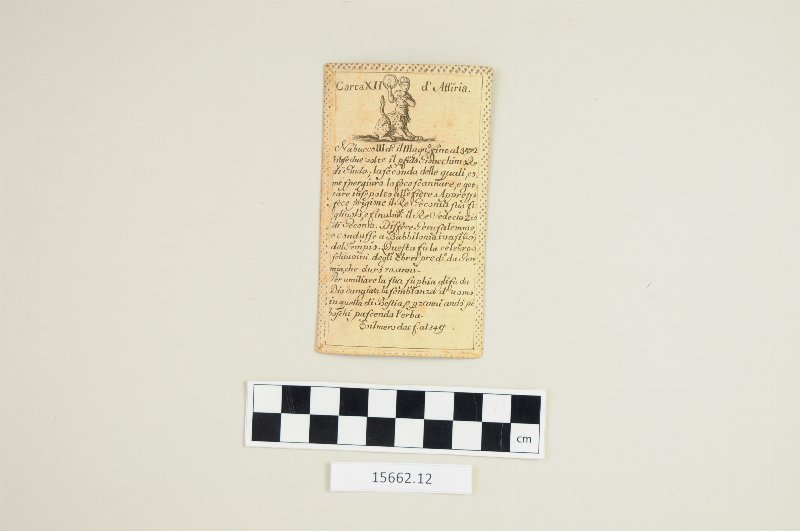 Carta XII d'Assiria.
Nabucco III d.º il Mag.
due volte il Gioacchim Re
di Giuda, la seconda delle quali, co
me spergiuro lo fece scannare, e get
tare insepolto alle fiere. Appresso
fece prigione il Re Geconia suo fi
gliuolo, e finalm.te il Re Sedecia Zio
di Geconia. Disfece Gerusalemme
e condusse a Babbilonia i vasi
del Tempio. Questa fu la celebre
schiavitù degli Ebrei pred.ª da Gere
mia, che durò 70. anni.
Per umiliare la sua superbia gli fu da
Dio cangiata la sembianza d'uomo
in quella di Bestia e 7 anni andò pe
boschi pascendo l'erba.
cm
15662.12